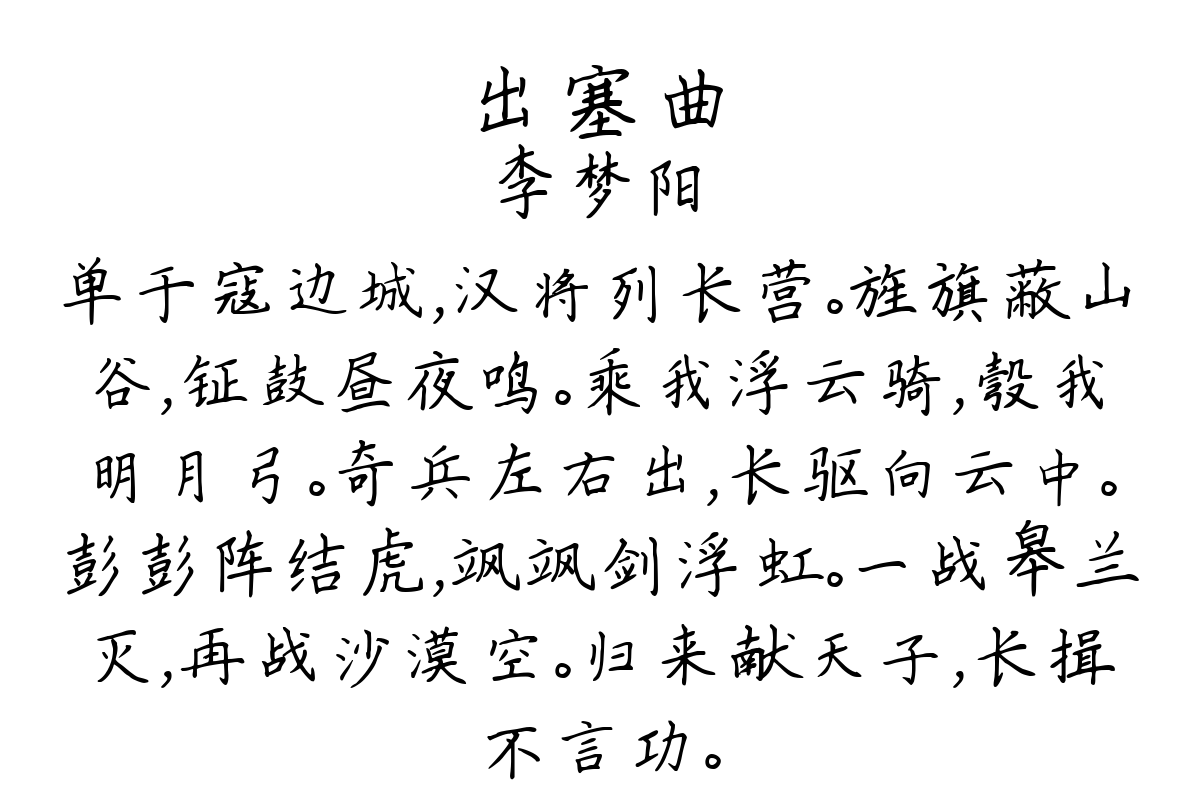 出塞曲
李梦阳
单于寇边城,汉将列长营。旌旗蔽山
谷,钲鼓昼夜鸣。乘我浮云骑,彀我
明月弓。奇兵左右出,长驱向云中。
彭彭阵结虎,飒飒剑浮虹。一战皋兰
灭,再战沙漠空。归来献天子,长揖
不言功。